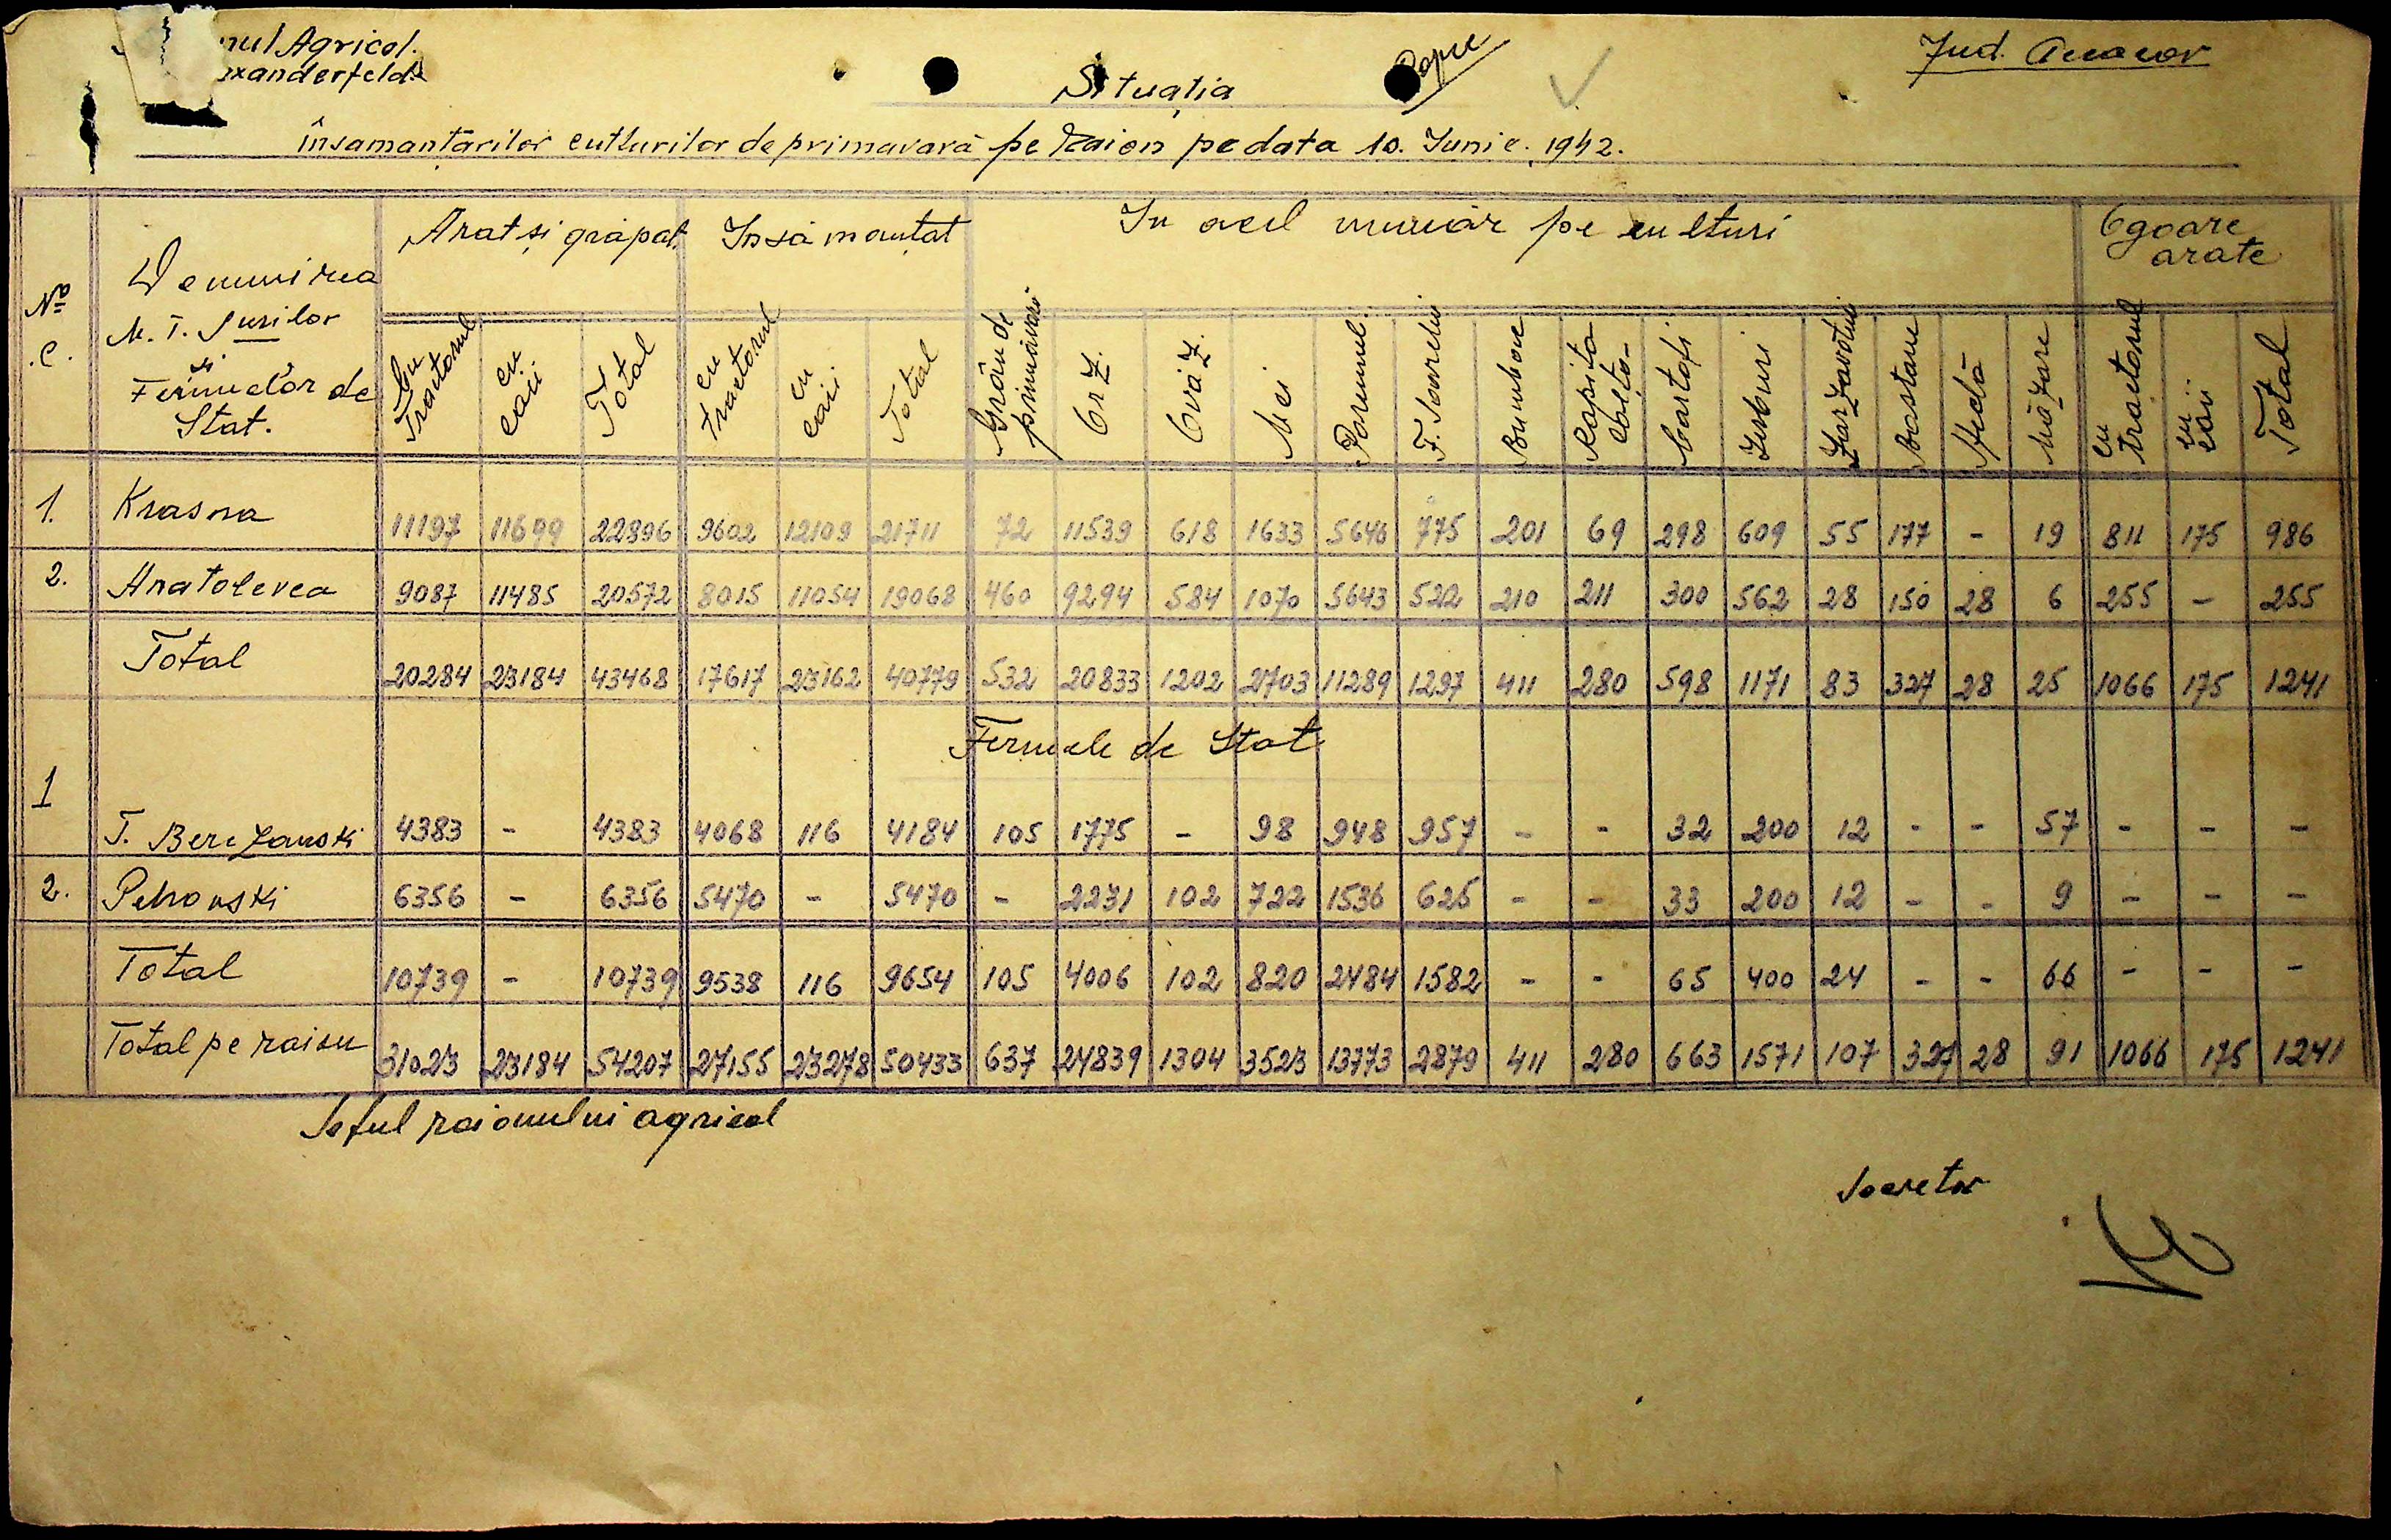 nul Agricol.
xanderfeld.
Copie
Jud. Ananev
Situația
însamanțărilor culturilor de primavară pe Raion pe data 10. Junie. 1942.
No .C.
Denumirea M.T. Surilor și Fermelor de Stat.
Arat și grăpat. Insămanțat In acel număr pe culturi Ogoare arate
Cu Tractorul cu caii Total cu tractorul cu caii Total Grâu de primăvară Orz. Ovăz. Mei Porumul. F. Soarelui Bumbac Rapița Cartofi Ierburi Zarzavaturi Bastane Sfeclă Măzare cu tractorul cu caii Total
1. Krasna 11197 11699 22896 9602 12109 21711 72 11539 618 1633 5646 775 201 69 298 609 55 177 - 19 811 175 986
2. Anatolevca 9087 11485 20572 8015 11054 19068 460 9294 584 1070 5643 522 210 211 300 562 28 150 28 6 255 - 255
Total 20284 23184 43468 17617 23162 40779 532 20833 1202 2703 11289 1297 411 280 598 1171 83 327 28 25 1066 175 1241
Fermele de Stat
1 T. Berezanski 4383 - 4383 4068 116 4184 105 1775 - 98 948 957 - - 32 200 12 - - 57 - - -
2. Petrovski 6356 - 6356 5470 - 5470 - 2231 102 722 1536 625 - - 33 200 12 - - 9 - - -
Total 10739 - 10739 9538 116 9654 105 4006 102 820 2484 1582 - - 65 400 24 - - 66 - - -
Total pe raion 31023 23184 54207 27155 23278 50433 637 24839 1304 3523 13773 2879 411 280 663 1571 107 327 28 91 1066 175 1241
Șeful raionului agricol
Secretar